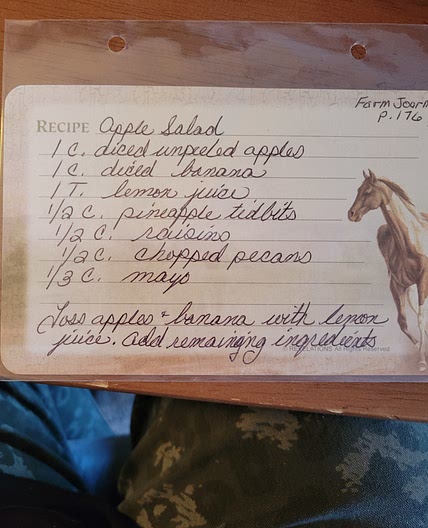 Farm Journ
P. 176
RECIPE Apple Salad
1 C. diced unpeeled apples
1 C. diced banana
1 T. lemon juice
1/2 C. pineapple tidbits
1/2 C. raisins
1/2 C. chopped pecans
1/3 C. mayo
Toss apples + banana with lemon
juice. Add remainging ingredients
© REVELATIONS. All Rights Reserved